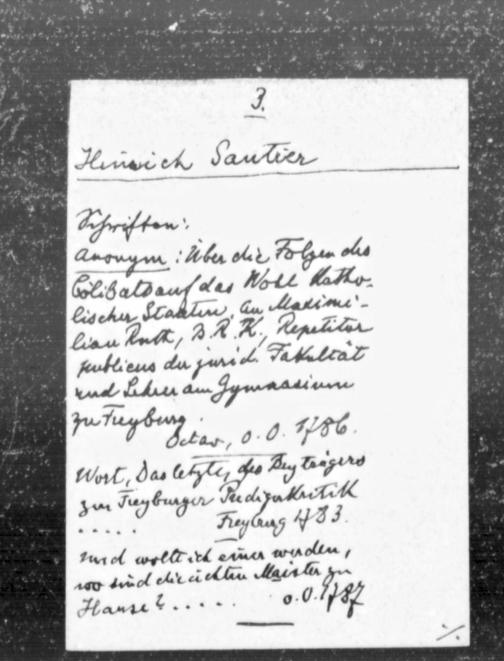 3.
Heinrich Sautier
Schriften:
Anonym: Über die Folgen des
Cölibats auf das Wohl Katho-
lischer Staaten. An Maximi-
lian Ruth, B. R. K., Repetitor
publicus der jurid. Fakultät
und Lehrer am Gymnasium
zu Freyburg.
Octav, o. O. 1786.
Wort, Das letzte, des Beyträgers
zur Freyburger Predigerkritik
..... Freyburg 1783.
und wollte ich einer werden,
wo sind die ächten Maister zu
Hause? ..... o.O. 1787
./.